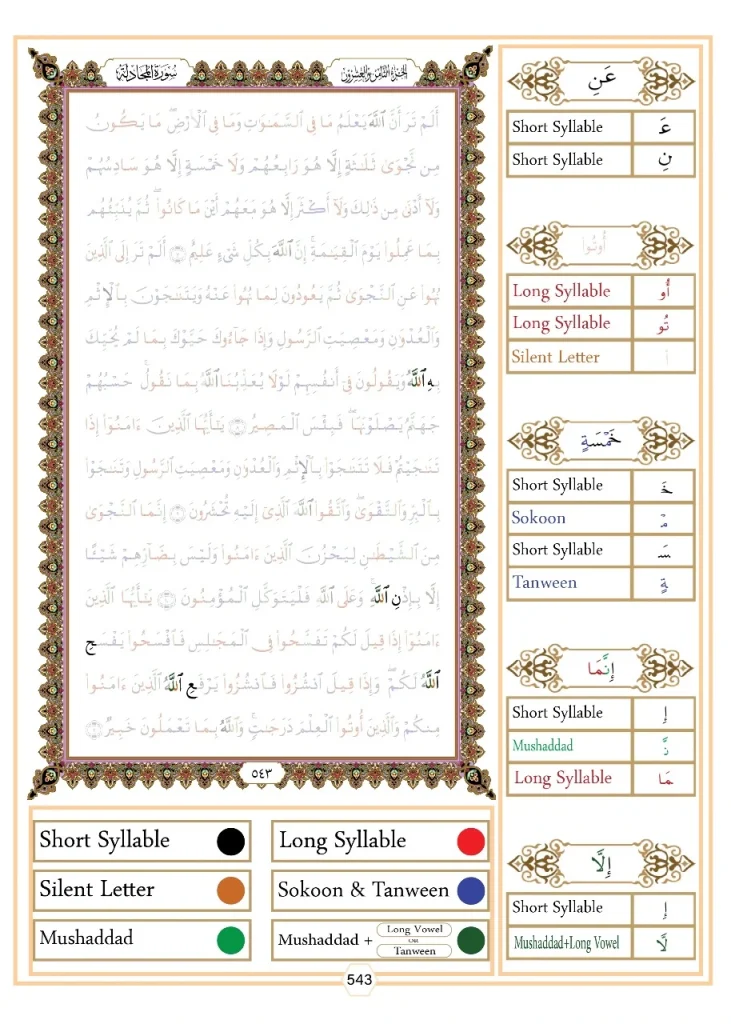 سُورَةُ المُجَادلَة
الجُزءُ الثَّامِنُ وَالعِشْرُونَ
أَلَمْ تَرَ أَنَّ ٱللَّهَ يَعْلَمُ مَا فِى ٱلسَّمَٰوَٰتِ وَمَا فِى ٱلْأَرْضِ ۖ مَا يَكُونُ
مِن نَّجْوَىٰ ثَلَٰثَةٍ إِلَّا هُوَ رَابِعُهُمْ وَلَا خَمْسَةٍ إِلَّا هُوَ سَادِسُهُمْ
وَلَآ أَدْنَىٰ مِن ذَٰلِكَ وَلَآ أَكْثَرَ إِلَّا هُوَ مَعَهُمْ أَيْنَ مَا كَانُوا۟ ۖ ثُمَّ يُنَبِّئُهُم
بِمَا عَمِلُوا۟ يَوْمَ ٱلْقِيَٰمَةِ ۚ إِنَّ ٱللَّهَ بِكُلِّ شَىْءٍ عَلِيمٌ ٧ أَلَمْ تَرَ إِلَى ٱلَّذِينَ
نُهُوا۟ عَنِ ٱلنَّجْوَىٰ ثُمَّ يَعُودُونَ لِمَا نُهُوا۟ عَنْهُ وَيَتَنَٰجَوْنَ بِٱلْإِثْمِ
وَٱلْعُدْوَٰنِ وَمَعْصِيَتِ ٱلرَّسُولِ وَإِذَا جَآءُوكَ حَيَّوْكَ بِمَا لَمْ يُحَيِّكَ
بِهِ ٱللَّهُ وَيَقُولُونَ فِىٓ أَنفُسِهِمْ لَوْلَا يُعَذِّبُنَا ٱللَّهُ بِمَا نَقُولُ ۚ حَسْبُهُمْ
جَهَنَّمُ يَصْلَوْنَهَا ۖ فَبِئْسَ ٱلْمَصِيرُ ٨ يَٰٓأَيُّهَا ٱلَّذِينَ ءَامَنُوٓا۟ إِذَا
تَنَٰجَيْتُمْ فَلَا تَتَنَٰجَوْا۟ بِٱلْإِثْمِ وَٱلْعُدْوَٰنِ وَمَعْصِيَتِ ٱلرَّسُولِ وَتَنَٰجَوْا۟
بِٱلْبِرِّ وَٱلتَّقْوَىٰ ۖ وَٱتَّقُوا۟ ٱللَّهَ ٱلَّذِىٓ إِلَيْهِ تُحْشَرُونَ ٩ إِنَّمَا ٱلنَّجْوَىٰ
مِنَ ٱلشَّيْطَٰنِ لِيَحْزُنَ ٱلَّذِينَ ءَامَنُوا۟ وَلَيْسَ بِضَآرِّهِمْ شَيْـًٔا
إِلَّا بِإِذْنِ ٱللَّهِ ۚ وَعَلَى ٱللَّهِ فَلْيَتَوَكَّلِ ٱلْمُؤْمِنُونَ ١٠ يَٰٓأَيُّهَا ٱلَّذِينَ
ءَامَنُوٓا۟ إِذَا قِيلَ لَكُمْ تَفَسَّحُوا۟ فِى ٱلْمَجَٰلِسِ فَٱفْسَحُوا۟ يَفْسَحِ
ٱللَّهُ لَكُمْ ۖ وَإِذَا قِيلَ ٱنشُزُوا۟ فَٱنشُزُوا۟ يَرْفَعِ ٱللَّهُ ٱلَّذِينَ ءَامَنُوا۟
مِنكُمْ وَٱلَّذِينَ أُوتُوا۟ ٱلْعِلْمَ دَرَجَٰتٍ ۚ وَٱللَّهُ بِمَا تَعْمَلُونَ خَبِيرٌ ١١
٥٤٣
عَنِ
Short Syllable عَ
Short Syllable نِ
أُوتُوا۟
Long Syllable أُو
Long Syllable تُو
Silent Letter ا
خَمْسَةٍ
Short Syllable خَـ
Sokoon مْـ
Short Syllable سَـ
Tanween ـةٍ
إِنَّمَا
Short Syllable إِ
Mushaddad نَّـ
Long Syllable ـمَا
إِلَّا
Short Syllable إِ
Mushaddad+Long Vowel لَّا
Short Syllable
Long Syllable
Silent Letter
Sokoon & Tanween
Mushaddad
Mushaddad + Long Vowel OR Tanween
543